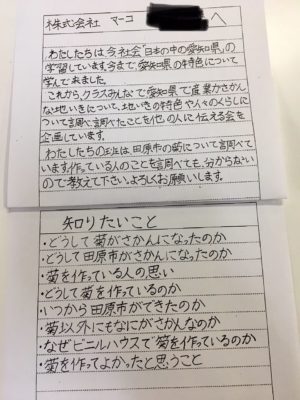 株式会社 マーコ へ
わたしたちは、今、社会「日本の中の愛知県」の
学習しています。今まで、愛知県の特色について
学んできました。
これから、クラスみんなで愛知県で産業がさかん
な地いきについて、地いきの特色や人々のくらしに
ついて調べ、調べたことを他の人に伝える会を
企画しています。
わたしたちの班は、田原市の菊について調べて
います。作っている人のことを調べても、分からない
ので教えて下さい。よろしくお願いします。
知りたいこと
・どうして菊がさかんになったのか
・どうして田原市がさかんになったのか
・菊を作っている人の思い
・どうして菊を作っているのか
・いつから田原市ができたのか
・菊以外にもなにがさかんなのか
・なぜビニルハウスで菊を作っているのか
・菊を作ってよかったと思うこと